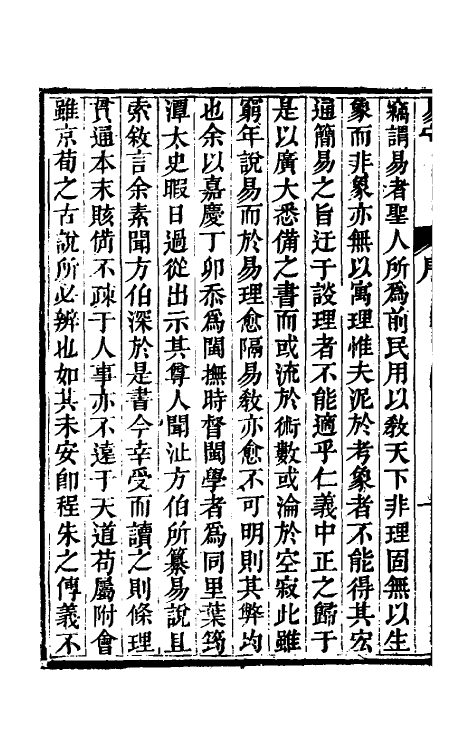 竊謂易者聖人所爲前民用以敎天下非理固無以生
象而非象亦無以寓理惟夫泥於考象者不能得其宏
通簡易之旨迂于談理者不能適乎仁義中正之歸于
是以廣大悉備之書而或流於術數或淪於空寂此雖
窮年說易而於易理愈隔易敎亦愈不可明則其弊均
也余以嘉慶丁卯忝爲閩撫時督閩學者爲同里葉筠
潭太史暇日過從出示其尊人聞沚方伯所纂易說且
索敘言余素聞方伯深於是書今幸受而讀之則條理
貫通本末賅備不疎于人事亦不遠于天道苟屬附會
雖京荀之古說所必辨也如其未安卽程朱之傳義不